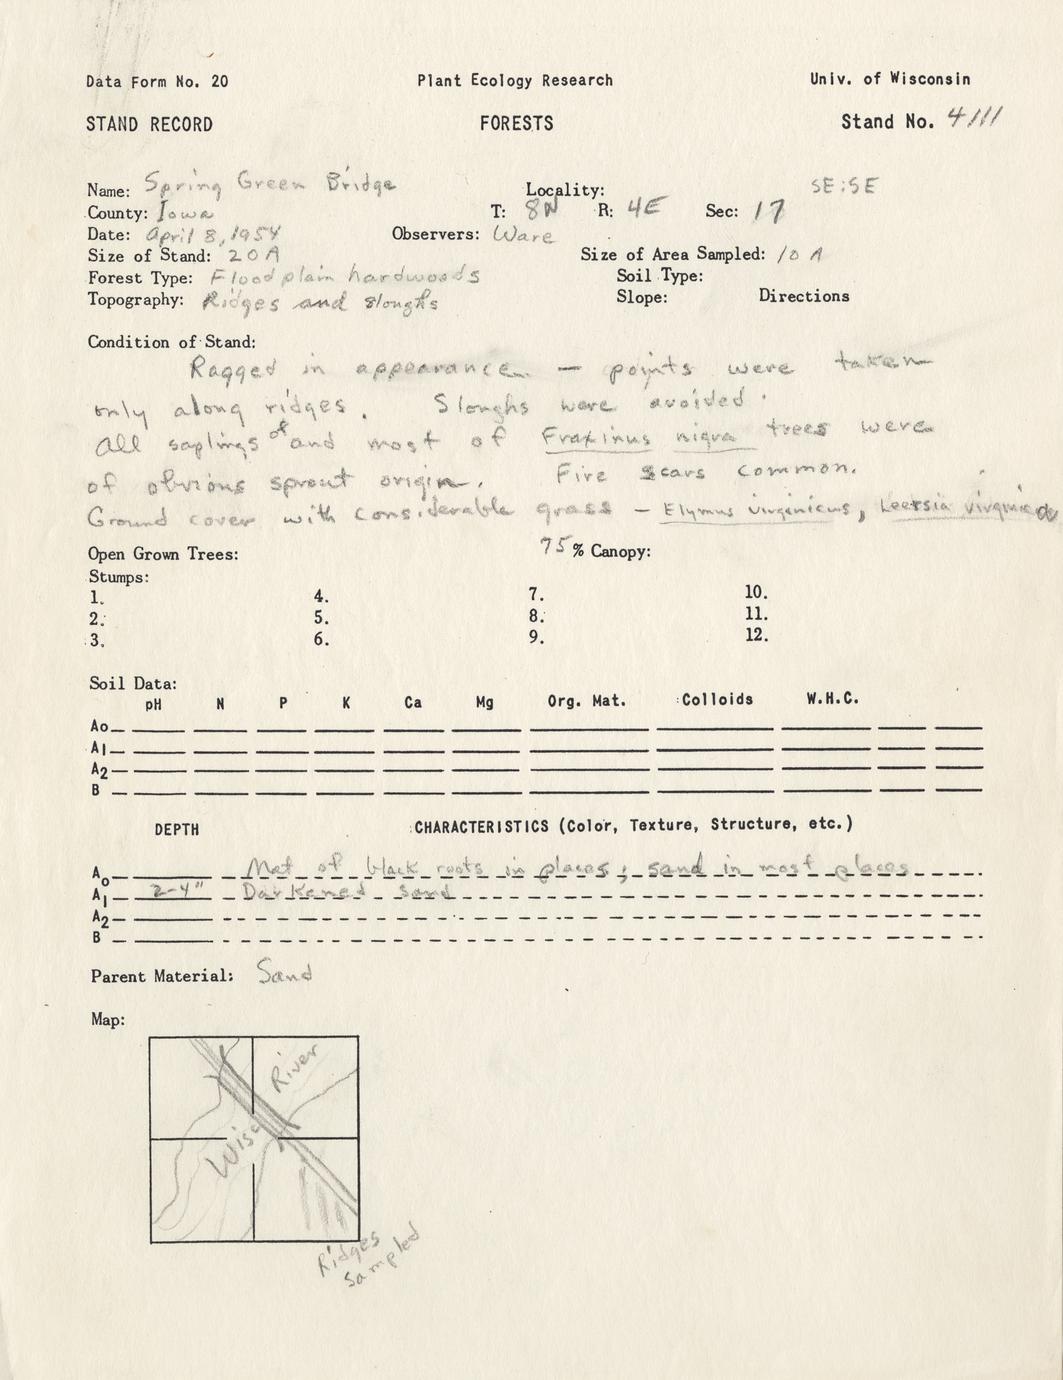 Data Form No. 20 Plant Ecology Research Univ. of Wisconsin
STAND RECORD FORESTS Stand No. 4111
Name: Spring Green Bridge Locality: SE:SE
County: Iowa T: 8N R: 4E Sec: 17
Date: April 8, 1954 Observers: Ware
Size of Stand: 20 A Size of Area Sampled: 10 A
Forest Type: Flood plain hardwoods Soil Type:
Topography: Ridges and sloughs Slope: Directions
Condition of Stand:
Ragged in appearance — points were taken
only along ridges. Sloughs were avoided.
All saplings of and most of Fraxinus nigra trees were
of obvious sprout origin. Fire scars common.
Ground cover with considerable grass — Elymus virginicus, Leersia
Open Grown Trees: 75% Canopy:
Stumps:
1. 4. 7. 10.
2. 5. 8. 11.
3. 6. 9. 12.
Soil Data:
pH N P K Ca Mg Org. Mat. Colloids W.H.C.
Ao
A1
A2
B
DEPTH CHARACTERISTICS (Color, Texture, Structure, etc.)
Ao Mat of black roots in places; sand in most places
A1 2-4" Darkened sand
A2
B
Parent Material: Sand
Map:
River
Wisc
Ridges
Sampled